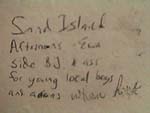 Sand Island
Afternoons - Ewa
side BJ & ass
for young local boys
and asians